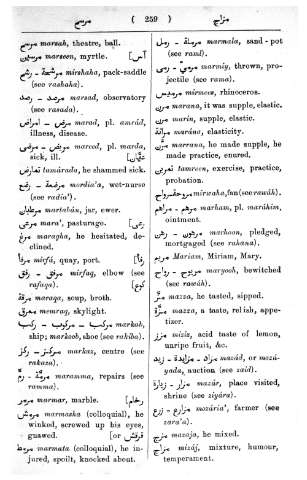 مرسح ( 259 ) مزاج
مرسح marsah, theatre, ball.
مرسين marseen, myrtle. [آس
مرشحة – رشح mirshaha, pack-saddle
(see rashaha).
مرصد – رصد marsad, observatory
(see rasada).
مرض – امراض marad, pl. amrád,
illness, disease.
مريض – مرضى mareed, pl. marda,
sick, ill.
تمارض tamárada, he shammed sick.
مرضعة – رضع mordia'a, wet-nurse
(see radia').
مرطبان martabán, jar, ewer.
مرعى mara', pasturage. [رعى
مرغ maragha, he hesitated, de-
clined.
مرفأ mirfá, quay, port.
مرفق – رفق mirfaq, elbow (see
rafaqa). [كوع
مرقة maraqa, soup, broth.
ممرق memraq, skylight.
مركب – مركوب – ركب markab,
ship; markoob, shoe (see rahiba).
مركز – ركز markaz, centre (see
rakaza).
مرمة – رم maramma, repairs (see
ramma).
مرمر marmar, marble. [رخام
marmasha (colloquial), he
winked, screwed up his eyes,
gnawed. [or قرقش
مرمط marmata (colloquial), he in-
jured, spoilt, knocked about.
مرملة – رمل marmala, sand-pot
(see raml).
مرمى – رمى marmiy, thrown, pro-
jectile (see rama).
مرميس mirmees, rhinoceros.
مرن marana, it was supple, elastic.
مرن marin, supple, elastic.
مرانة marána, elasticity.
مرّن marrana, he made supple, he
made practice, enured.
تمرين tamreen, exercise, practice,
probation.
مروحة – رواح mirwaha, fan (see rawáh).
مرهم – مراهم marham, pl. maráhim,
ointment.
مرهون – رهن marhoon, pledged,
mortgaged (see rahana).
مريم Mariam, Miriam, Mary.
maryooh, bewitched
(see rawáh).
مزّ mazza, he tasted, sipped.
مزّة mazza, a taste, relish, appe-
tizer.
مزز mizis, acid taste of lemon,
unripe fruit, &c.
مزاد – مزايدة – زيد mazád, or mozá-
yada, auction (see zaid).
مزار – زيارة mazár, place visited,
shrine (see ziyára).
مزارع – زرع mozária', farmer (see
zara'a).
مزج mazaja, he mixed.
مزاج mizáj, mixture, humour,
temperament.